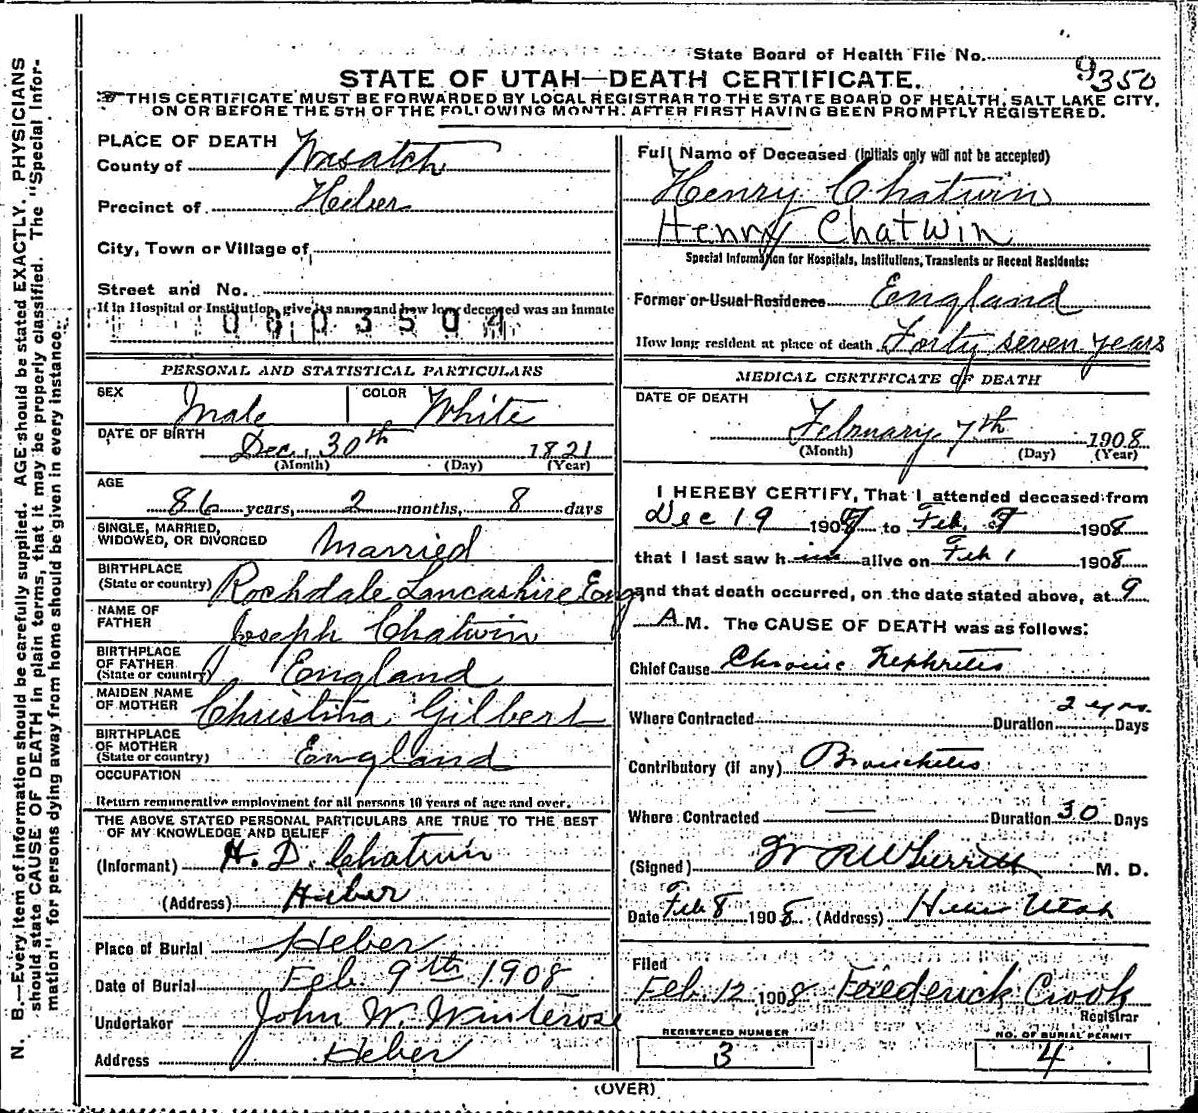 State Board of Health File No. 9350
STATE OF UTAH—DEATH CERTIFICATE.
THIS CERTIFICATE MUST BE FORWARDED BY LOCAL REGISTRAR TO THE STATE BOARD OF HEALTH, SALT LAKE CITY,
ON OR BEFORE THE 5TH OF THE FOLLOWING MONTH. AFTER FIRST HAVING BEEN PROMPTLY REGISTERED.
N. B.—Every item of information should be carefully supplied. AGE should be stated EXACTLY. PHYSICIANS
should state CAUSE OF DEATH in plain terms, that it may be properly classified. The "Special Infor-
mation" for persons dying away from home should be given in every instance.
PLACE OF DEATH
County of Wasatch
Precinct of Heber
City, Town or Village of
Street and No.
If in Hospital or Institution, give its name and how long deceased was an inmate
0803504
PERSONAL AND STATISTICAL PARTICULARS
SEX Male COLOR White
DATE OF BIRTH Dec. 30th 1821
(Month) (Day) (Year)
AGE
86 years, 2 months, 8 days
SINGLE, MARRIED,
WIDOWED, OR DIVORCED Married
BIRTHPLACE
(State or country) Rochdale Lancashire Eng
NAME OF
FATHER Joseph Chatwin
BIRTHPLACE
OF FATHER
(State or country) England
MAIDEN NAME
OF MOTHER Christina Gilbert
BIRTHPLACE
OF MOTHER
(State or country) England
OCCUPATION
Return remunerative employment for all persons 10 years of age and over.
THE ABOVE STATED PERSONAL PARTICULARS ARE TRUE TO THE BEST
OF MY KNOWLEDGE AND BELIEF
(Informant) H. D. Chatwin
(Address) Heber
Place of Burial Heber
Date of Burial Feb. 9th 1908
Undertaker John W. Winterose
Address Heber
Full Name of Deceased (Initials only will not be accepted)
Henry Chatwin
Henry Chatwin
Special Information for Hospitals, Institutions, Transients or Recent Residents:
Former or Usual Residence England
How long resident at place of death Forty seven years
MEDICAL CERTIFICATE OF DEATH
DATE OF DEATH
February 7th 1908
(Month) (Day) (Year)
I HEREBY CERTIFY, That I attended deceased from
Dec 19 1907 to Feb. 7 1908
that I last saw him alive on Feb 1 1908
and that death occurred, on the date stated above, at 9
A M. The CAUSE OF DEATH was as follows:
Chief Cause Chronic Nephritis
Where Contracted Duration 2 yrs. Days
Contributory (if any) Bronchitis
Where Contracted — Duration 30 Days
(Signed) M. D.
Date Feb 8 1908 (Address) Heber Utah
Filed
Feb. 12 1908 Frederick Crook
Registrar
REGISTERED NUMBER
3
NO. OF BURIAL PERMIT
4
(OVER)